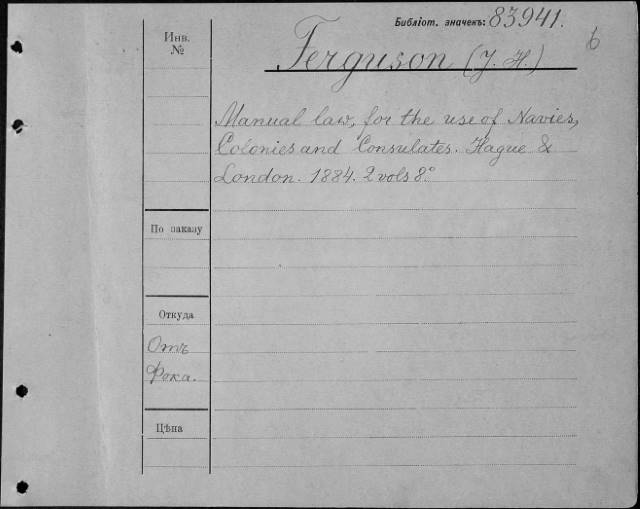 Библіот. значекъ: 83941.
6
Инв.
№
Ferguson (J. H.)
Manual law, for the use of Navies,
Colonies and Consulates. Hague &
London. 1884. 2 vols 8°
По заказу
Откуда
Отъ
Фока.
Цѣна